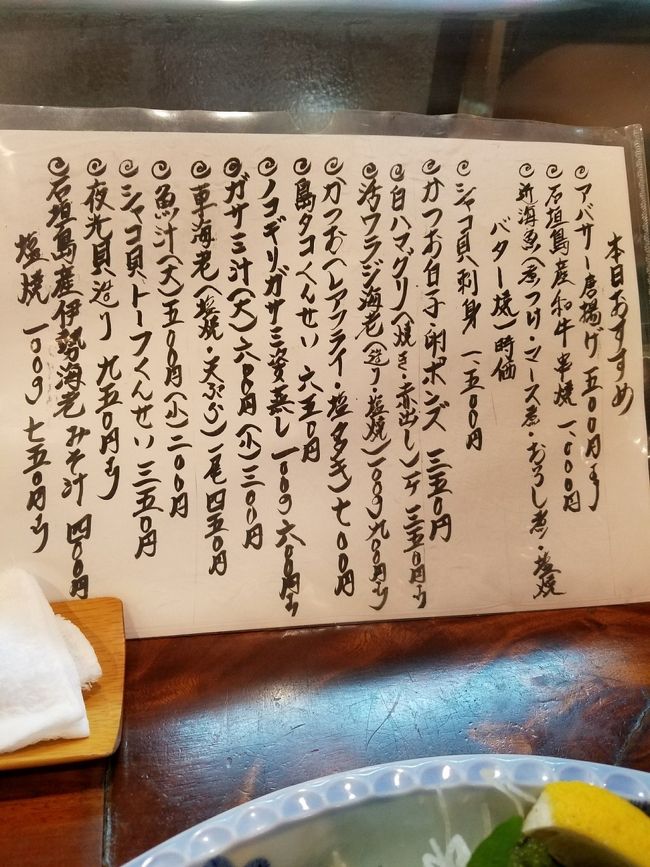 本日おすすめ
アバサー唐揚げ 五〇〇円より
石垣島産和牛串焼 一、〇〇〇円
近海魚(煮つけ・マース煮・おろし煮・塩焼
バター焼)時価
シャコ貝刺身 一、五〇〇円
かつお白子・卵ポンズ 三五〇円
白ハマグリ(焼き・赤出し)一ケ 三五〇円より
活ワラジ海老(造り・塩焼)一〇〇g九〇〇円より
かつお(レアフライ・塩タタキ)七〇〇円
島タコくんせい 六五〇円
ノコギリガサミ姿蒸し 一〇〇g 六〇〇円より
ガサミ汁(大)六〇〇円(小)三〇〇円
車海老(塩焼・天ぷら)一尾四五〇円
魚汁(大)五〇〇円(小)二〇〇円
シャコ貝トーフくんせい 三五〇円
夜光貝造り 九五〇円より
石垣島産伊勢海老 みそ汁 四〇〇円
塩焼 一〇〇g 七五〇円より